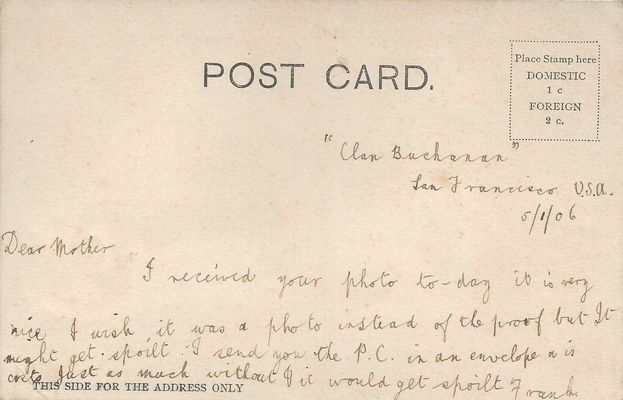 POST CARD.
Place Stamp here
DOMESTIC
1 c
FOREIGN
2 c.
"Clan Buchanan"
San Francisco U.S.A.
5/1/06
Dear Mother
I received your photo to-day it is very
nice I wish it was a photo instead of the proof but It
might get spoilt. I send you the P.C. in an envelope a is
costs Just as much without & it would get spoilt. Frank
THIS SIDE FOR THE ADDRESS ONLY